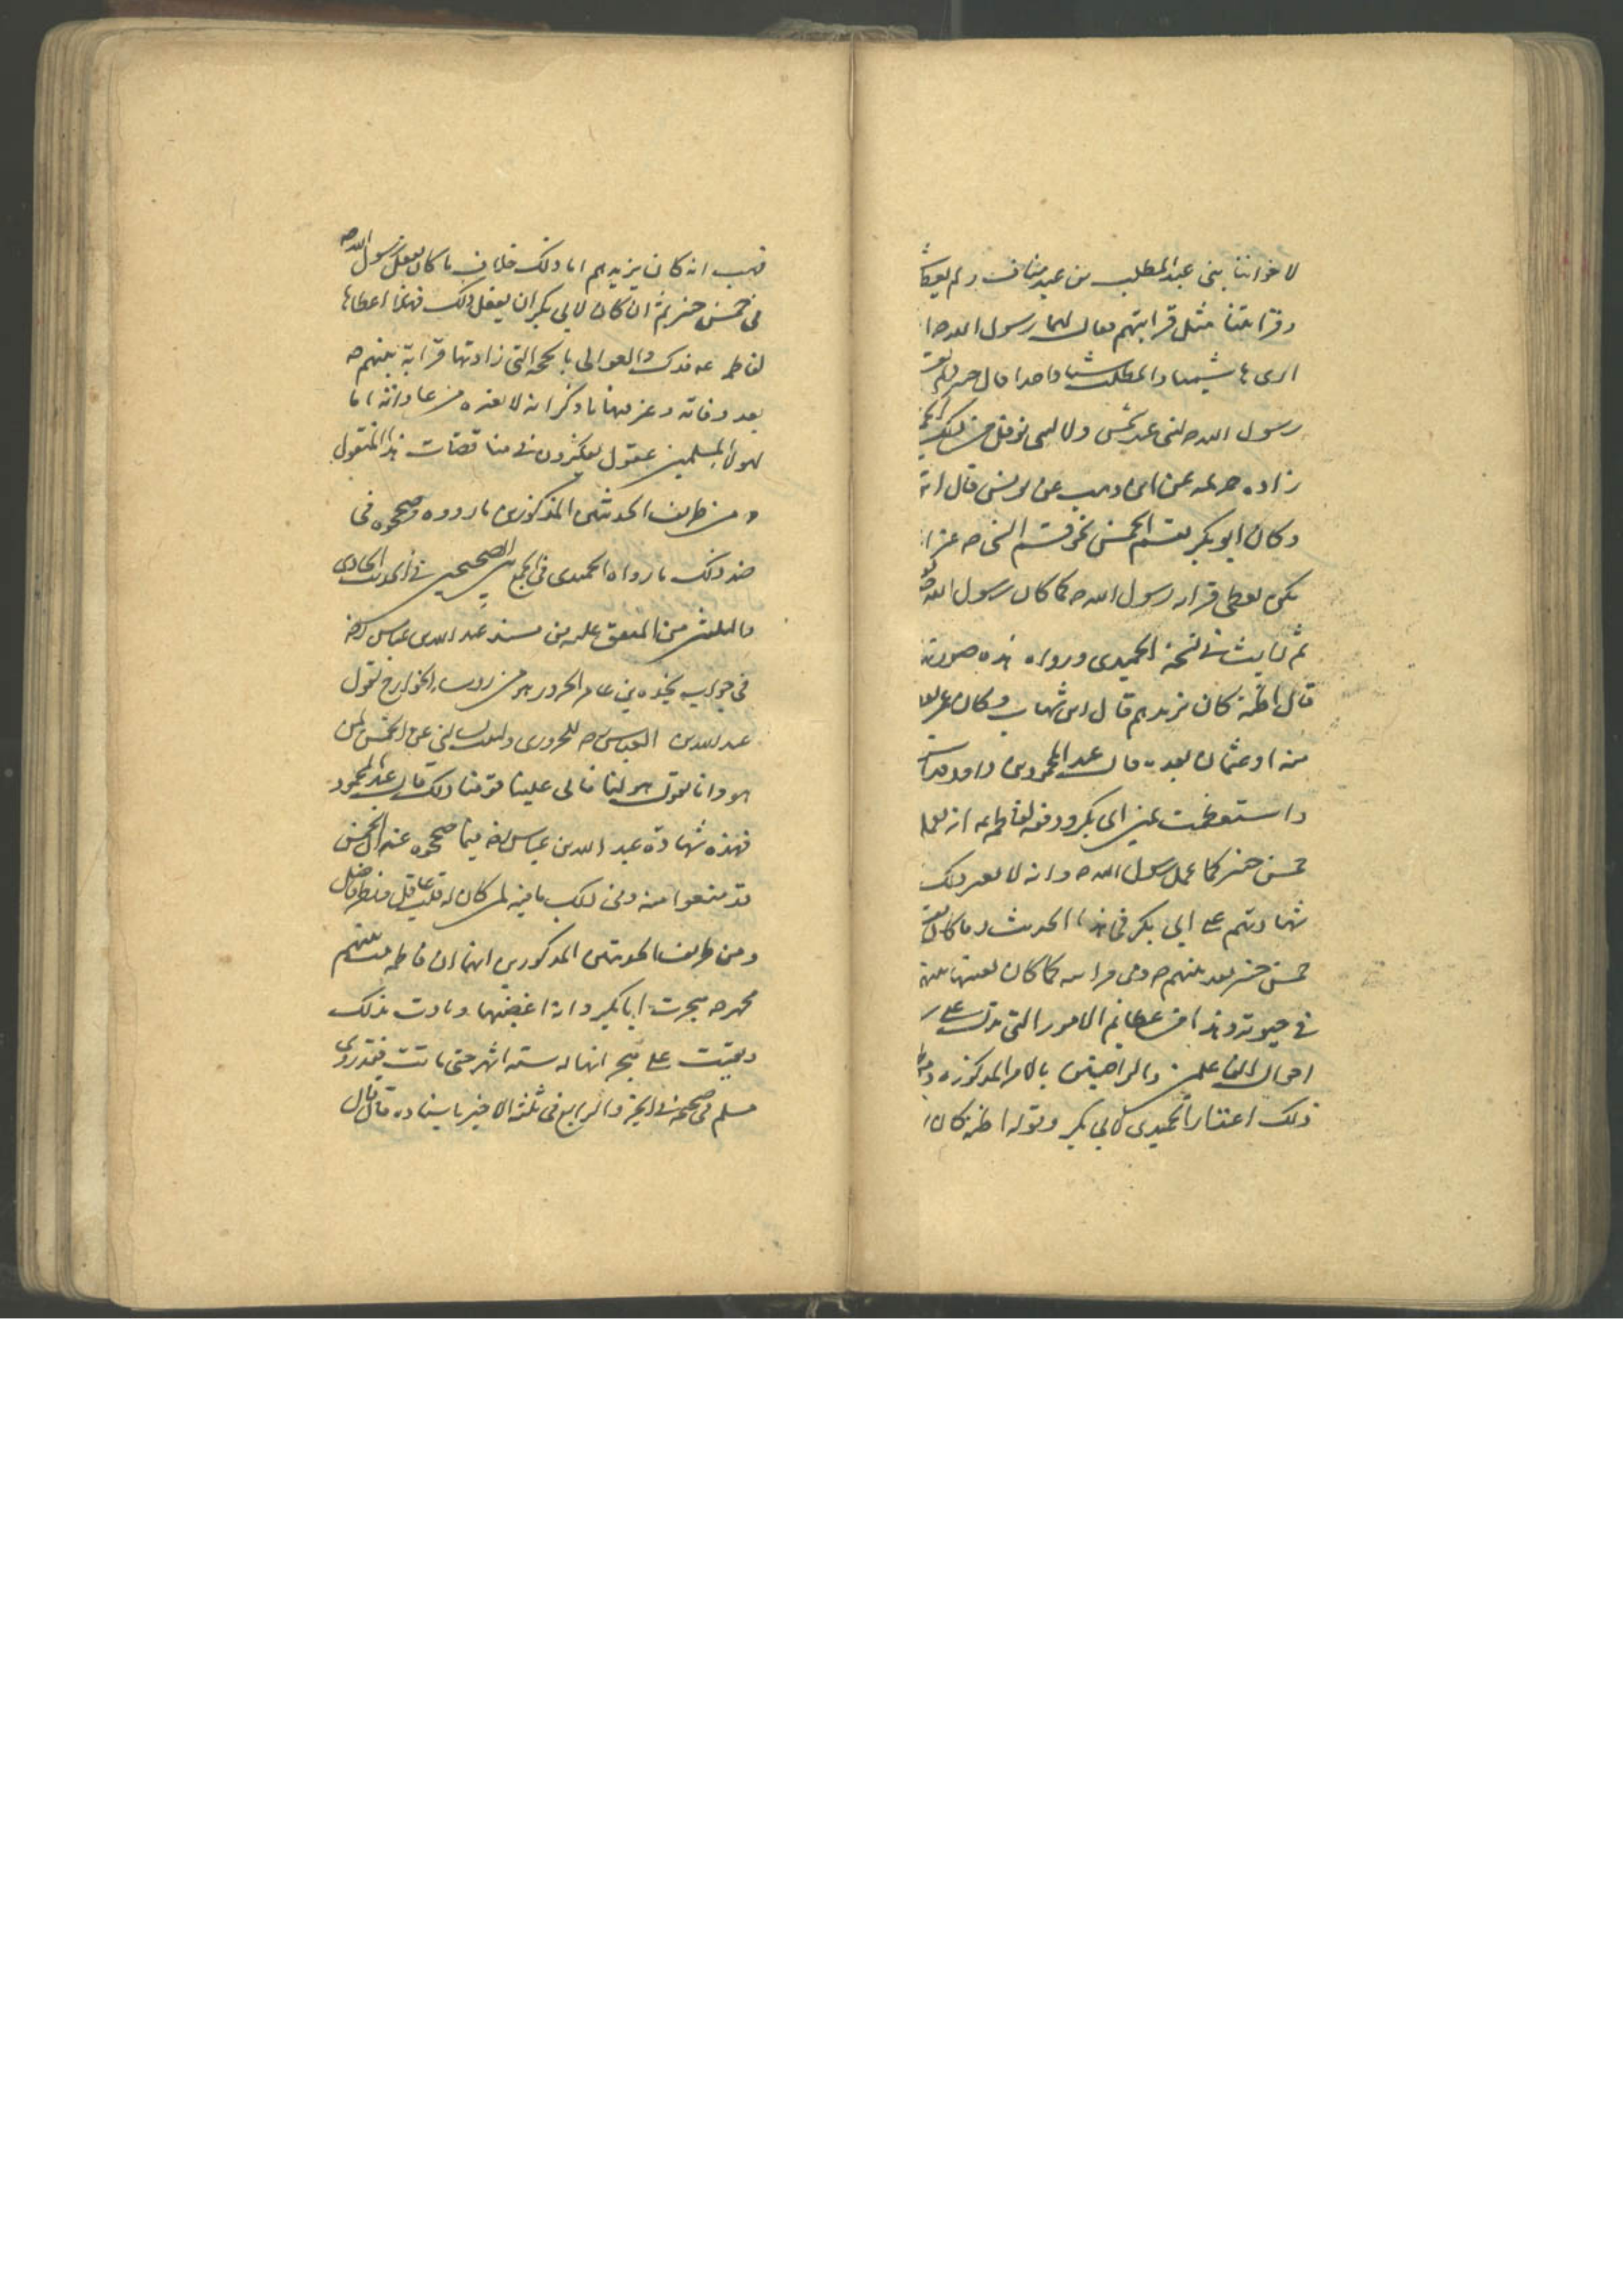 لاخواننا بنى عبد المطلب من عبد مناف ولم يعطنا
وقرابتنا مثل قرابتهم فقال لهما رسول الله ص
ارى هاشما والمطلب شيئا واحدا قال جبير ولم
رسول الله ص لبنى عبد شمس ولا لبنى نوفل من ذلك
زاده حرمله عن ابن وهب عن يونس قال
وكان ابو بكر يقسم الخمس نحو قسم النبى ص غير
يكن يعطى قرابه رسول الله ص كما كان رسول الله ص
ثم رايت فى نسخة الحميدى ورواه هذه صورته
قال اظنه كان يزيدهم قال ابن شهاب وكان عمر
منه او عثمان بعده قال عبد المحمود بن داود
واستعظمت من ابى بكر ودفعه لفاطمه
خمس خيبر كما عمل رسول الله ص وانه لا يغير ذلك
شهادتهم على ابى بكر فى هذا الحديث وما كان
خمس خيبر بعد نبيهم ص وفى قرابته كما كان نبيهم
فى حيوته وهذا من عظايم الامور التى تدل على
احوال الفاعلين والراضين بالامر المذكوره
ذلك اعتذار الحميدى لابى بكر وقوله اظنه كان
فهب انه كان يزيدهم اما ذلك خلاف ما كان يفعل رسول الله ص
فى خمس خيبر ثم ان كان لابى بكر ان يفعل ذلك فهلا اعطاها
لفاطمه ع فدك والعوالى بالحجه التى زادتها قرابة نبيهم ص
بعد وفاته وغيرها ما ذكر انه لا يغيره من عاداته اما
لهولاء المسلمين عقول يفكرون فى مناقضات هذا المنقول
ومن طرايف الحديثين المذكورين ما رووه وصححوه فى
ضد ذلك ما رواه الحميدى فى الجمع بين الصحيحين فى الحديث الحادى
والثلثين من المتفق عليه من مسند عبد الله بن عباس رض
فى جواب نجده بن عامر الحرورى هو من روساء الخوارج نقول
عبد الله بن العباس رض للحرورى وكتبت تسالنى عن الخمس لمن
هو وانا نقول هو لنا فابى علينا قومنا ذلك قال عبد المحمود
فهذه شهادة عبد الله بن عباس رض فيما صححوه عنه ان الخمس
قد منعوا منه وفى ذلك ما فيه لمن كان له قلب عاقل ونظر فاضل
ومن طرايف الحديثين المذكورين ايضا ان فاطمه بنت نبيهم
محمد ص هجرت ابا بكر وانه اغضبها وماتت بذلك
وبقيت على هجرانها له سته اشهر حتى ماتت فقد روى
مسلم فى صحيحه فى الجزو الرابع فى ثلثه الاخير باسناده قال قال